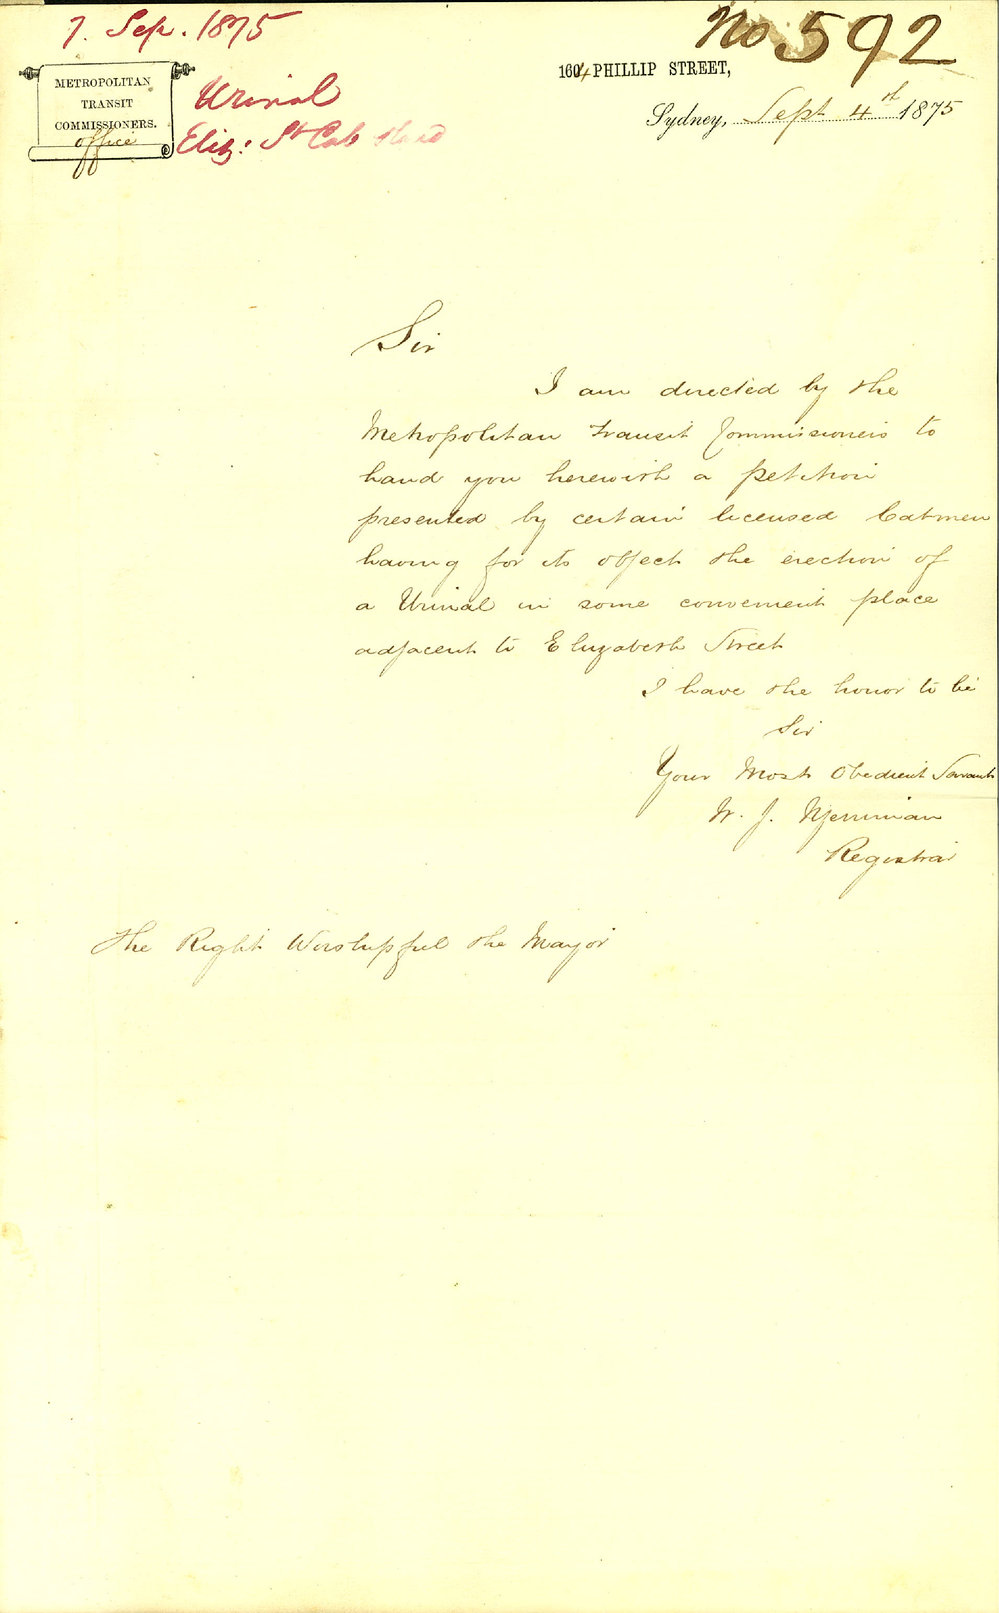 7. Sep. 1875
No. 592
METROPOLITAN
TRANSIT
COMMISSIONERS.
office
Urinal
Eliz: St Cab Stand
1604 PHILLIP STREET,
Sydney, Sept 4th 1875
Sir
I am directed by the
Metropolitan Transit Commissioners to
hand you herewith a petition
presented by certain licensed Cabmen
having for its object the erection of
a Urinal in some convenient place
adjacent to Elizabeth Street
I have the honor to be
Sir
Your Most Obedient Servant
W. J. Merriman
Registrar
The Right Worshipful the Mayor